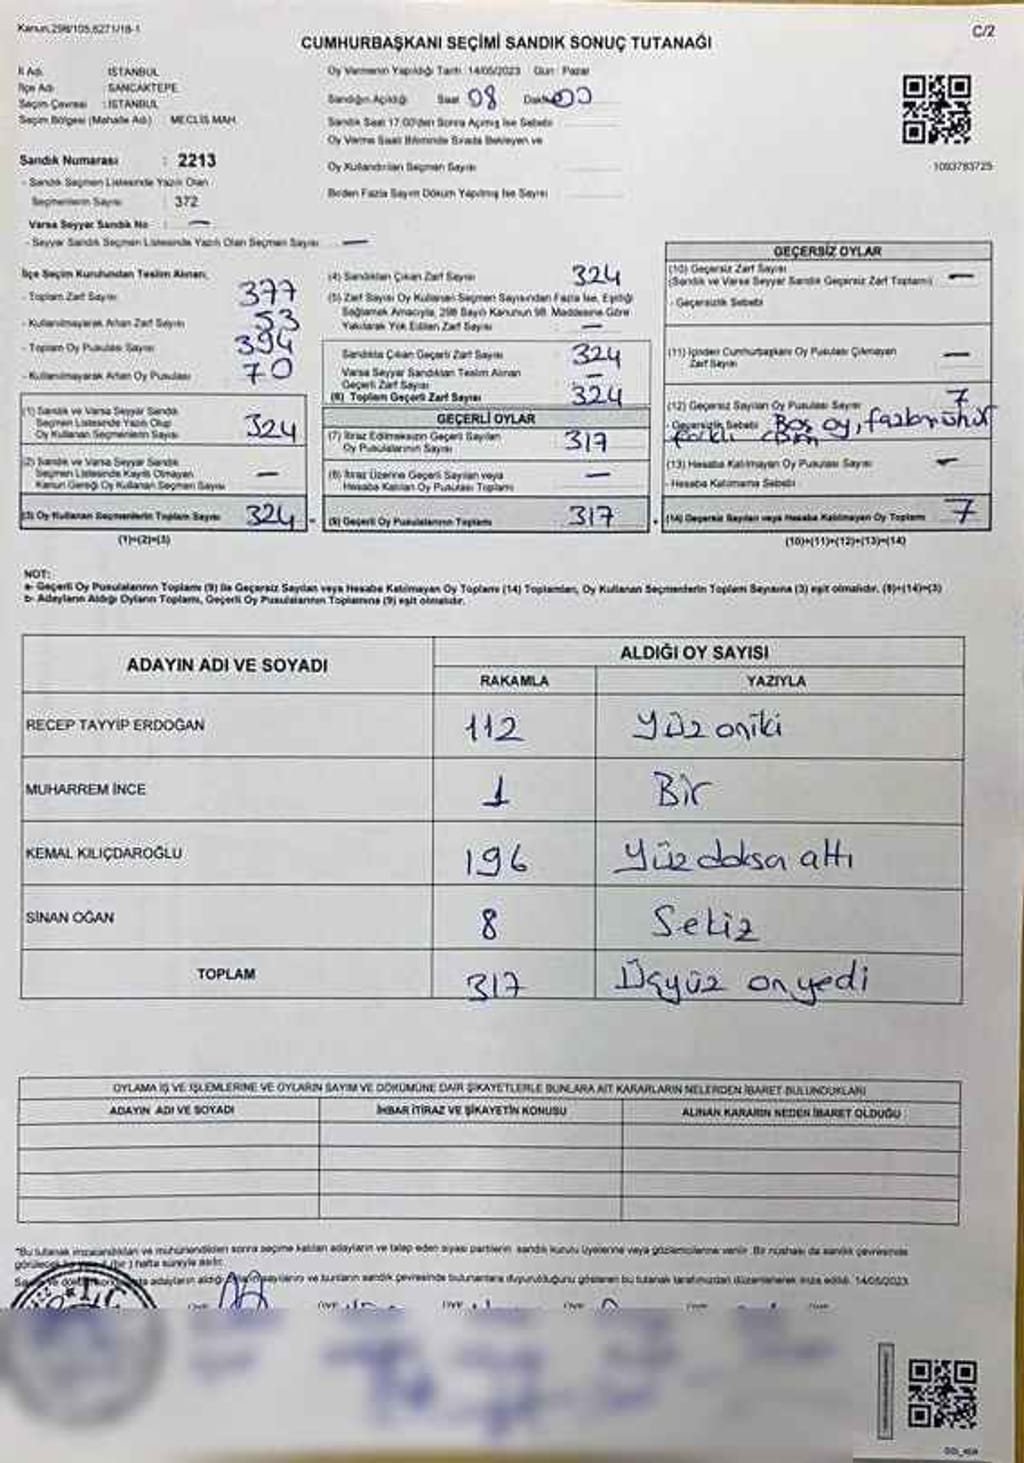 Kanun,298/105,6271/18-1
C/2
CUMHURBAŞKANI SEÇİMİ SANDIK SONUÇ TUTANAĞI
İl Adı : İSTANBUL
İlçe Adı : SANCAKTEPE
Seçim Çevresi : İSTANBUL
Seçim Bölgesi (Mahalle Adı) : MECLİS MAH.
Sandık Numarası : 2213
- Sandık Seçmen Listesinde Yazılı Olan
Seçmenlerin Sayısı : 372
Varsa Seyyar Sandık No : —
- Seyyar Sandık Seçmen Listesinde Yazılı Olan Seçmen Sayısı —
Oy Vermenin Yapıldığı Tarih :14/05/2023 Gün : Pazar
Sandığın Açıldığı Saat 08 Dakika 00
Sandık Saat 17.00'den Sonra Açılmış İse Sebebi
Oy Verme Saati Bitiminde Sırada Bekleyen ve
Oy Kullandırılan Seçmen Sayısı
Birden Fazla Sayım Döküm Yapılmış İse Sayısı
1093783725
İlçe Seçim Kurulundan Teslim Alınan;
- Toplam Zarf Sayısı 377
- Kullanılmayarak Artan Zarf Sayısı 53
- Toplam Oy Pusulası Sayısı 394
- Kullanılmayarak Artan Oy Pusulası 70
(1) Sandık ve Varsa Seyyar Sandık
Seçmen Listesinde Yazılı Olup
Oy Kullanan Seçmenlerin Sayısı 324
(2) Sandık ve Varsa Seyyar Sandık
Seçmen Listesinde Kayıtlı Olmayan
Kanun Gereği Oy Kullanan Seçmen Sayısı —
(3) Oy Kullanan Seçmenlerin Toplam Sayısı 324
(1)+(2)=(3)
(4) Sandıktan Çıkan Zarf Sayısı 324
(5) Zarf Sayısı Oy Kullanan Seçmen Sayısından Fazla İse, Eşitliği
Sağlamak Amacıyla, 298 Sayılı Kanunun 98. Maddesine Göre
Yakılarak Yok Edilen Zarf Sayısı —
Sandıkta Çıkan Geçerli Zarf Sayısı 324
Varsa Seyyar Sandıktan Teslim Alınan
Geçerli Zarf Sayısı —
(6) Toplam Geçerli Zarf Sayısı 324
GEÇERLİ OYLAR
(7) İtiraz Edilmeksizin Geçerli Sayılan
Oy Pusulalarının Sayısı 317
(8) İtiraz Üzerine Geçerli Sayılan veya
Hesaba Katılan Oy Pusulası Toplamı —
(9) Geçerli Oy Pusulalarının Toplamı 317
GEÇERSİZ OYLAR
(10) Geçersiz Zarf Sayısı
(Sandık ve Varsa Seyyar Sandık Geçersiz Zarf Toplamı) —
- Geçersizlik Sebebi
(11) İçinden Cumhurbaşkanı Oy Pusulası Çıkmayan
Zarf Sayısı —
(12) Geçersiz Sayılan Oy Pusulası Sayısı 7
- Geçersizlik Sebebi Boş oy, fazla mühür
farklı
(13) Hesaba Katılmayan Oy Pusulası Sayısı —
- Hesaba Katılmama Sebebi
(14) Geçersiz Sayılan veya Hesaba Katılmayan Oy Toplamı 7
(10)+(11)+(12)+(13)=(14)
NOT:
a- Geçerli Oy Pusulalarının Toplamı (9) ile Geçersiz Sayılan veya Hesaba Katılmayan Oy Toplamı (14) Toplamları, Oy Kullanan Seçmenlerin Toplam Sayısına (3) eşit olmalıdır. (9)+(14)=(3)
b- Adayların Aldığı Oyların Toplamı, Geçerli Oy Pusulalarının Toplamına (9) eşit olmalıdır.
ADAYIN ADI VE SOYADI
ALDIĞI OY SAYISI
RAKAMLA YAZIYLA
RECEP TAYYİP ERDOĞAN 112 Yüz oniki
MUHARREM İNCE 1 Bir
KEMAL KILIÇDAROĞLU 196 Yüz doksa altı
SİNAN OĞAN 8 Sekiz
TOPLAM 317 Üçyüz on yedi
OYLAMA İŞ VE İŞLEMLERİNE VE OYLARIN SAYIM VE DÖKÜMÜNE DAİR ŞİKAYETLERLE BUNLARA AİT KARARLARIN NELERDEN İBARET BULUNDUKLARI
ADAYIN ADI VE SOYADI İHBAR İTİRAZ VE ŞİKAYETİN KONUSU ALINAN KARARIN NEDEN İBARET OLDUĞU
*Bu tutanak imzalandıktan ve mühürlendikten sonra seçime katılan adayların ve talep eden siyasi partilerin sandık kurulu üyelerine veya gözlemcilerine verilir. Bir nüshası da sandık çevresinde
görülecek bir yere (bir) hafta süreyle asılır.
adayların aldığı oyların sayılarını ve bunların sandık çevresinde bulunanlara duyurulduğunu gösteren bu tutanak tarafımızdan düzenlenerek imza edildi. 14/05/2023
T.C.